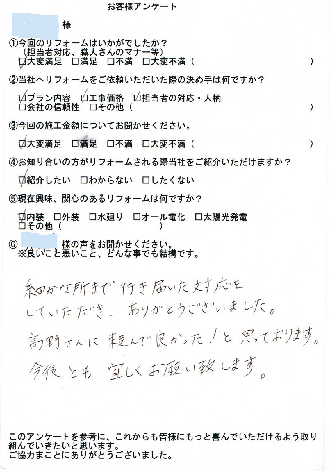 お客様アンケート
様
①今回のリフォームはいかがでしたか？
（担当者対応、職人さんのマナー等）
☑大変満足 □満足 □不満 □大変不満（ ）
②当社へリフォームをご依頼いただいた際の決め手は何ですか？
☑プラン内容 ☑工事価格 ☑担当者の対応・人柄
□会社の信頼性 □その他（ ）
③今回の施工金額についてお聞かせください。
□大変満足 ☑満足 □不満 □大変不満（ ）
④お知り合いの方がリフォームされる際当社をご紹介いただけますか？
☑紹介したい □わからない □したくない
⑤現在興味、関心のあるリフォームは何ですか？
☑内装 □外装 □水廻り □オール電化 □太陽光発電
□その他（ ）
⑥ 様の声をお聞かせください。
※良いこと悪いこと、どんな事でも結構です。
細かな所まで行き届いた対応を
していただき、ありがとうございました。
高野さんに頼んで良かった！と思っております。
今後とも宜しくお願い致します。
このアンケートを参考に、これからも皆様にもっと喜んでいただけるよう取り
組んでいきたいと思います。
ご協力まことにありがとうございました。